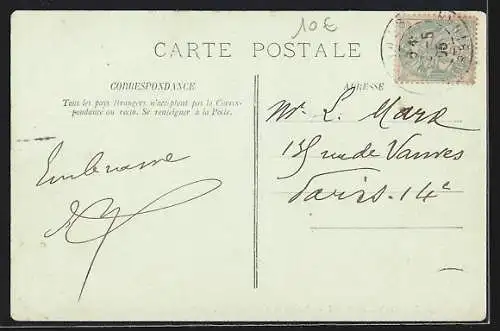 10€
CARTE POSTALE
CORRESPONDANCE
Tous les pays étrangers n'acceptent pas la Corres-
pondance au recto. Se renseigner à la Poste.
Embrasse
ADRESSE
Mr L. Mard
rue de Vanves
Paris. 14e